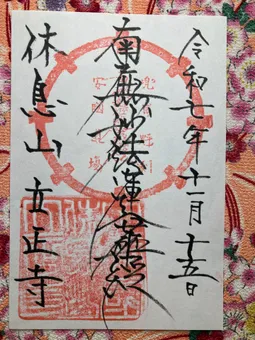 令和七年十一月十五日
南無妙法蓮華経
休息山立正寺